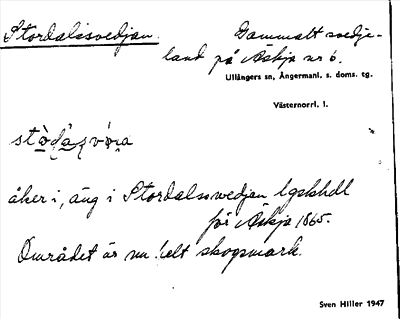 Stordalssvedjan. Gammalt svedje-
land på Äskja nr 6.
Ullångers sn, Ångermanl. s. doms. tg.
Västernorrl. l.
åker i, äng i Stordalssvedjan lgskhdl
för Äskja 1865.
Området är nu helt skogsmark.
Sven Hiller 1947